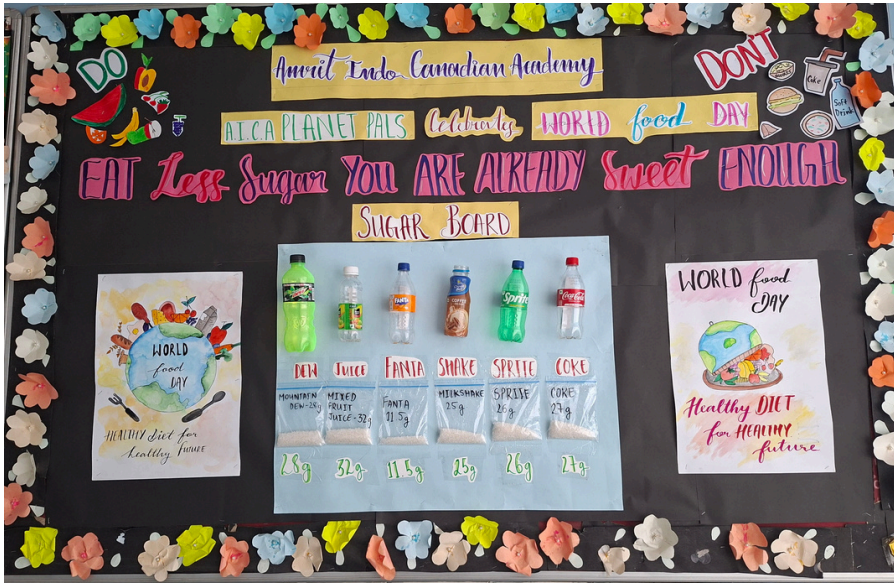 DO
Amrit Indo Canadian Academy
DON'T
A.I.C.A PLANET PALS Celebrates WORLD food DAY
Coke
Soft Drink
EAT Less Sugar YOU ARE ALREADY Sweet ENOUGH
SUGAR BOARD
WORLD
food
DAY
HEALTHY Diet for
healthy Future
FANTA
Sprite
Coca-Cola
DEW JUICE FANTA SHAKE SPRITE COKE
MOUNTAIN
DEW-28g
MIXED
FRUIT
JUICE-32g
FANTA
11.5g
MILKSHAKE
25g
SPRITE
26g
COKE
27g
28g 32g 11.5g 25g 26g 27g
WORLD food
DAY
Healthy DIET
for HEALTHY
future